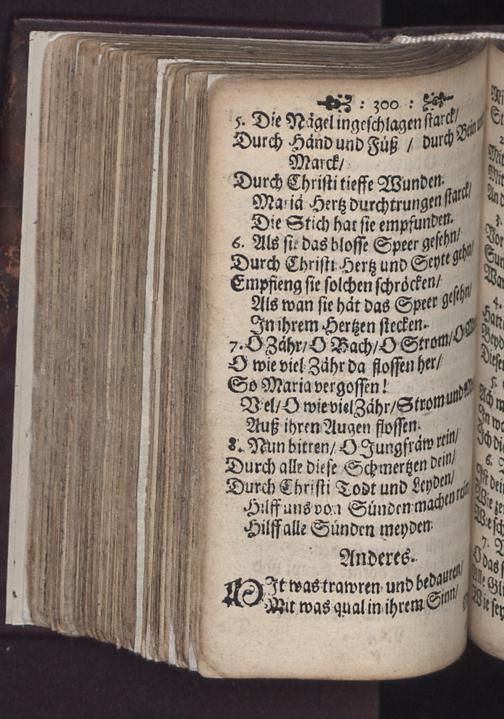 : 300 :
5. Die Nägel ingeschlagen starck/
Durch Händ und Füß / durch Bein und
Marck/
Durch Christi tieffe Wunden.
Mariä Hertz durchtrungen starck/
Die Stich hat sie empfunden.
6. Als sie das blosse Speer gesehn/
Durch Christi Hertz und Seyte gehn/
Empfieng sie solchen schröcken/
Als wan sie hät das Speer gesehn/
In ihrem Hertzen stecken.
7. O Zähr/ O Bach/ O Strom/
O wie viel Zähr da flossen her/
So Maria vergossen!
Viel/ O wie viel Zähr/ Strom und
Auß ihren Augen flossen.
8. Nun bitten/ O Jungfräw rein/
Durch alle diese Schmertzen dein/
Durch Christi Todt und Leyden/
Hilff uns von Sünden machen rein/
Hilff alle Sünden meyden.
Anderes.
MIt was trawren und bedauren/
Mit was qual in ihrem Sinn/